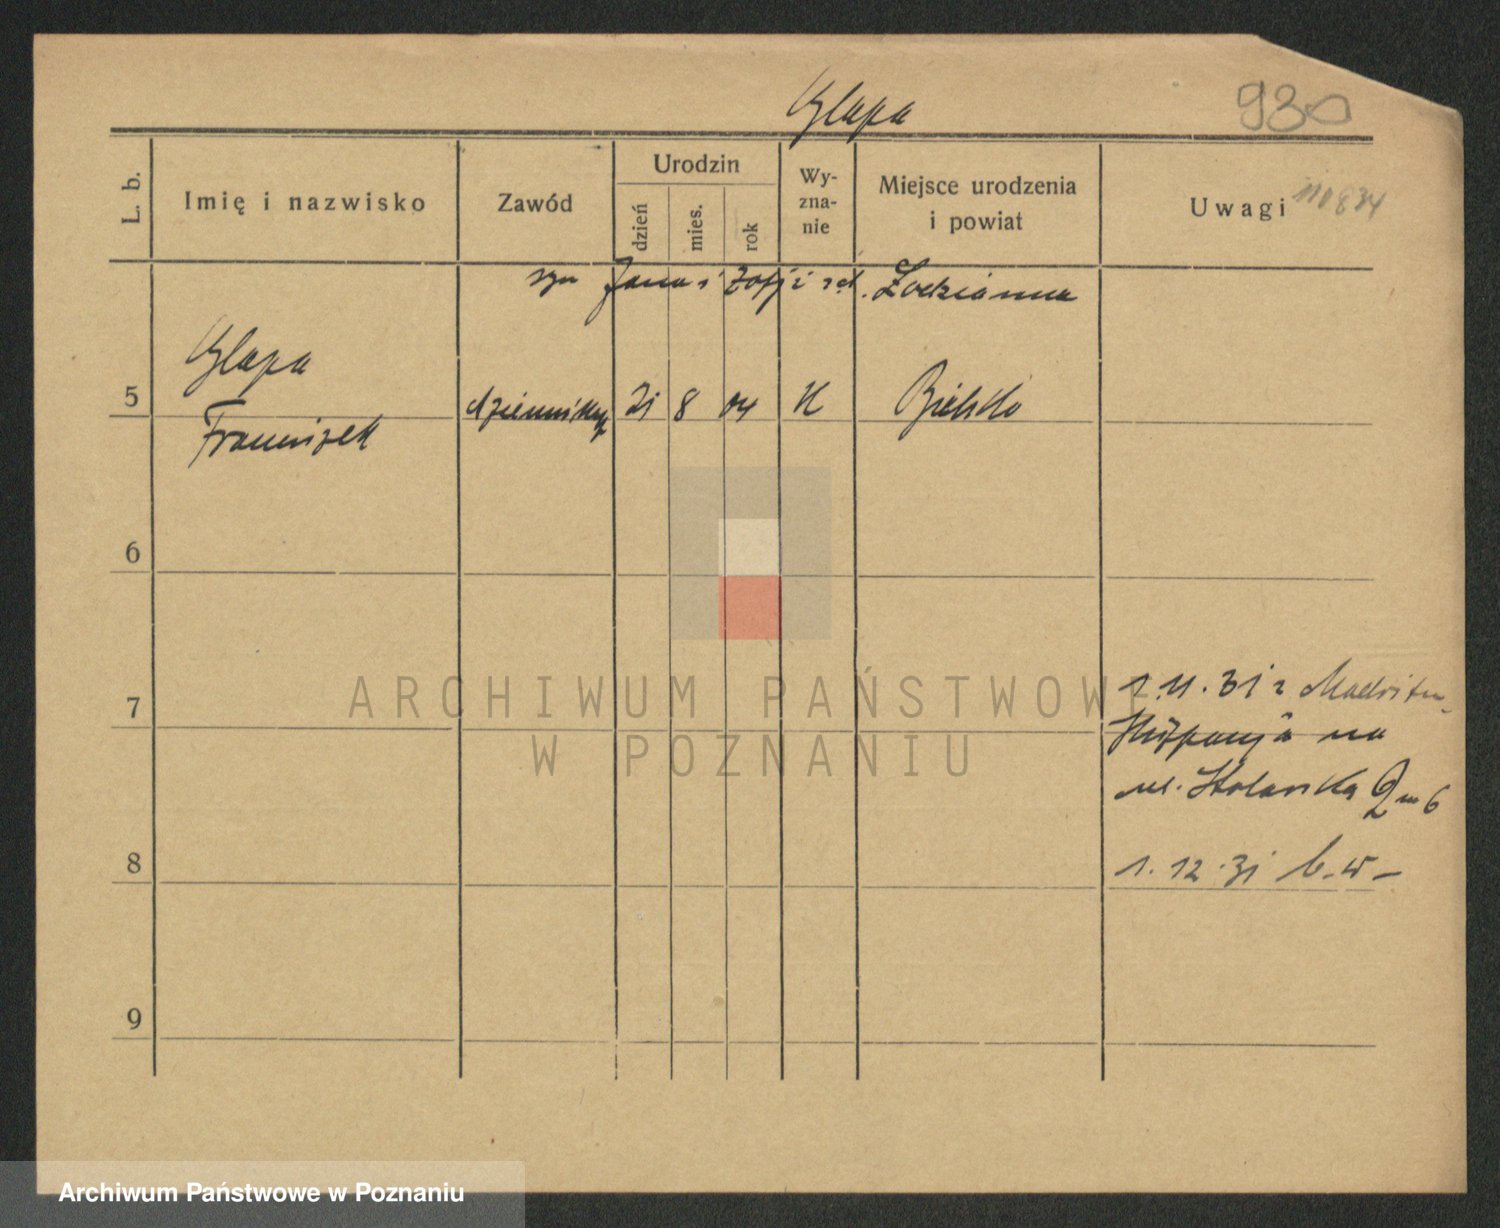 Glapa
930
L. b.
Imię i nazwisko
Zawód
Urodzin
dzień
mies.
rok
Wy-
zna-
nie
Miejsce urodzenia
i powiat
Uwagi
110834
syn Jana i Zofji z d.
5
Glapa
Franciszek
dziennikarz
21
8
04
K
Bielsko
6
7
8
9
1.11.31 z Madrytu
Hiszpanja na
ul. Stolarska 2 m 6
1.12.31 b.w.
ARCHIWUM PAŃSTWOWE
W POZNANIU
Archiwum Państwowe w Poznaniu